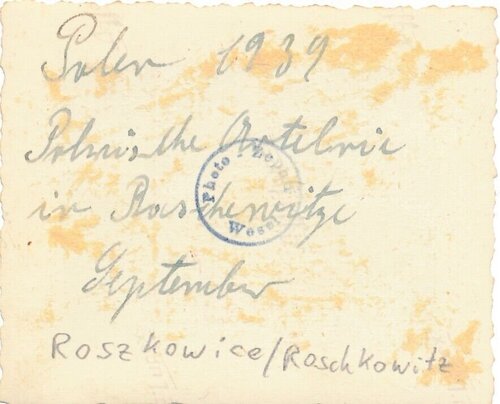 Polen 1939
Polnische Artelrie
in Raschewitze
September
Photo
Wesel
Roszkowice/Roschkowitz